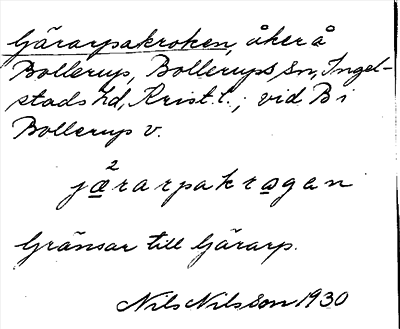 Gärarpakroken, åker å
Bollerup, Bollerups sn, Ingel-
stads hd, Krist. l.; vid B i
Bollerup v.
2
järarpakrogan
Gränsar till Gärarp.
Nils Nilsson 1930